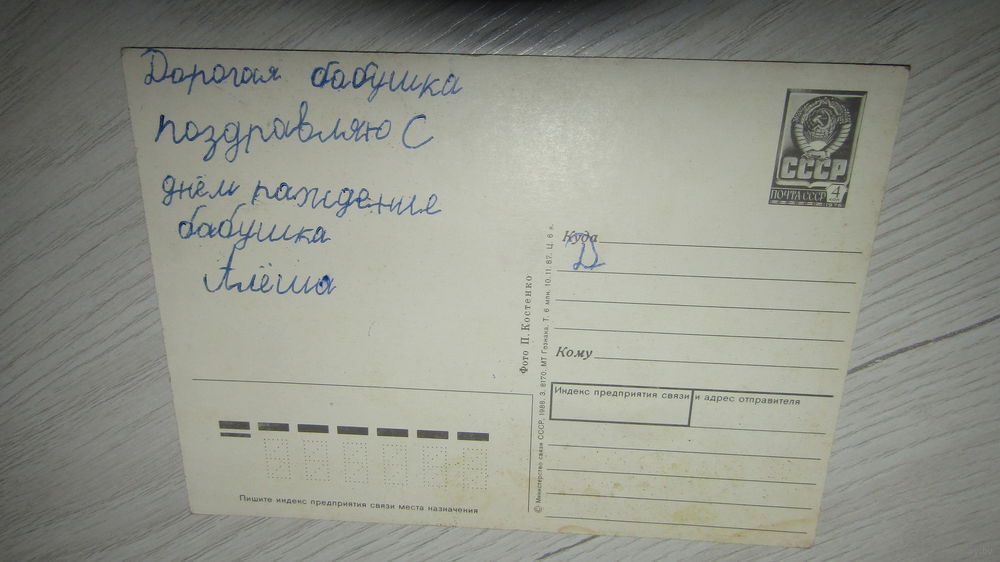 Дорогая бабушка
поздравляю С
днём раждение
бабушка
Алёша
СССР
ПОЧТА СССР 4
Куда
Д
Кому
Индекс предприятия связи и адрес отправителя
Фото П. Костенко
© Министерство связи СССР, 1988. З. 8170. МТ Гознака. Т. 6 млн. 10.11.87. Ц. 6 к.
Пишите индекс предприятия связи места назначения